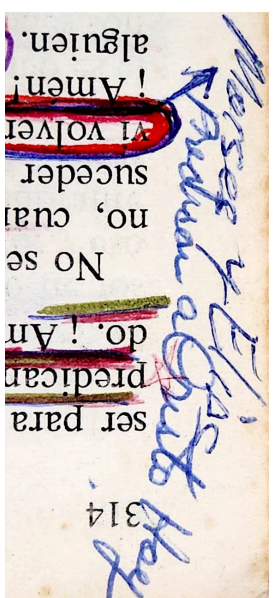 314
ser para
predican
do. ¡ Am
No se
no, cua
suceder
vi volver
¡ Amén!
alguien.
Moises y Elias
Predican a Cristo Hoy